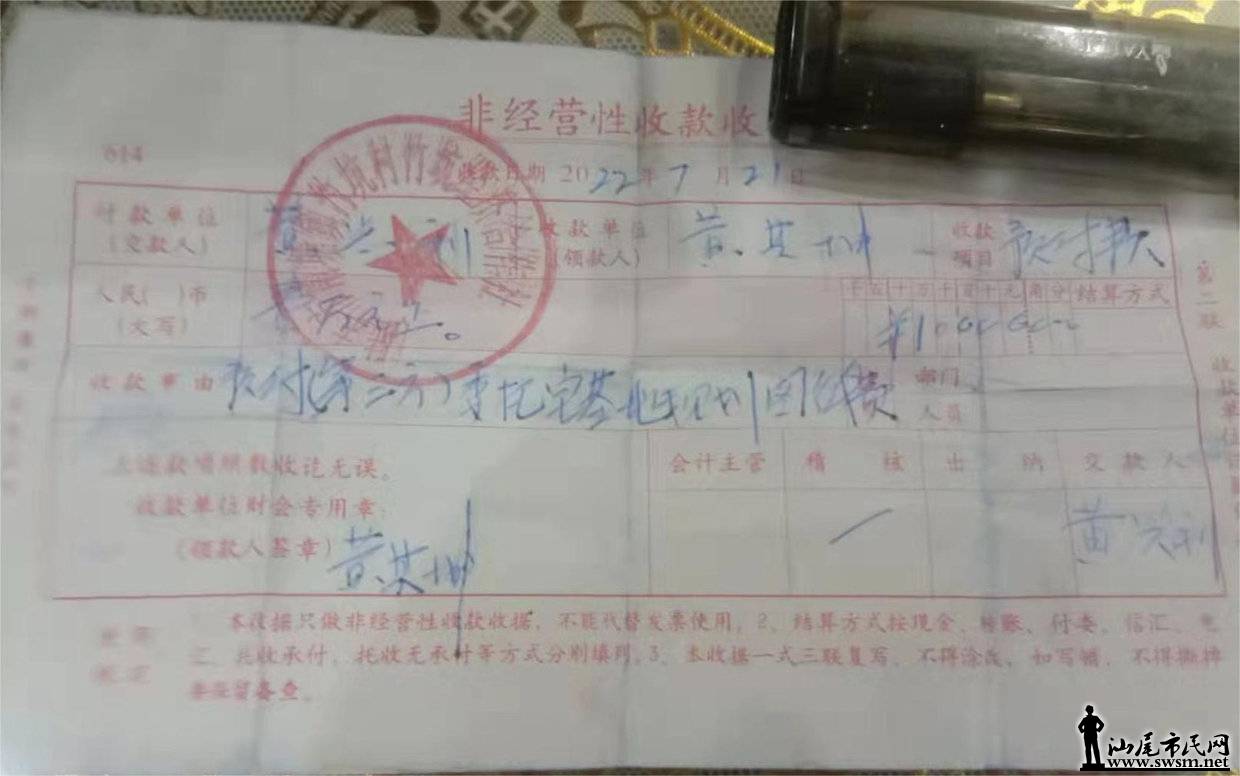 非经营性收款收
614
收款日期 2022年7月21日
付款单位
(交款人)
黄兴利
收款单位
(领款人)
黄其坤
收款
项目
预付款
人民( )币
(大写)
壹万元正。
千百十万千百十元角分
结算方式
¥10000
收款事由
预付(第二次)
宅基地规划图纸费
部门
人员
上述款项照数收讫无误。
收款单位财会专用章
(领款人签章)
黄其坤
会计主管
稽 核
出 纳
交款人
黄兴利
本收据只做非经营性收款收据，不能代替发票使用。2、结算方式按现金、转账、付委、信汇、电
汇、托收承付、托收无承付等方式分别填列。3、本收据一式三联复写，不得涂改，如写错，不得撕掉
要保留备查。
第二联
收款单位
汕尾市民网
www.swsm.net